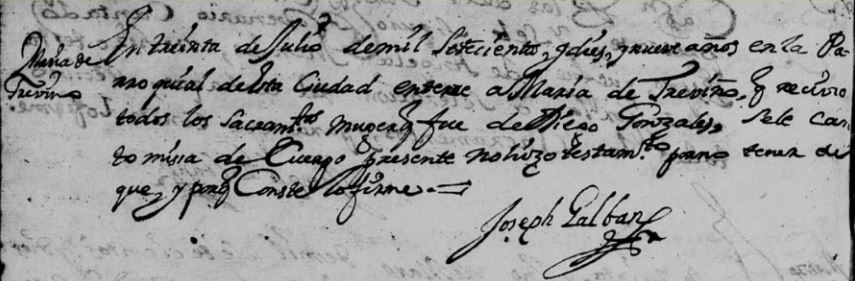 Maria de
Treviño
En treinta de Julio de mil Setecientos, y dies, y nueve años en la Pa-
rroquial de esta Ciudad enterre a Maria de Treviño, q recivio
todos los Sacram.tos muger q fue de Diego Gonzales, Sele can-
to misa de Cuerpo presente no hizo testam.to por no tener de
que, y porq Conste lo firme.
Joseph Galban